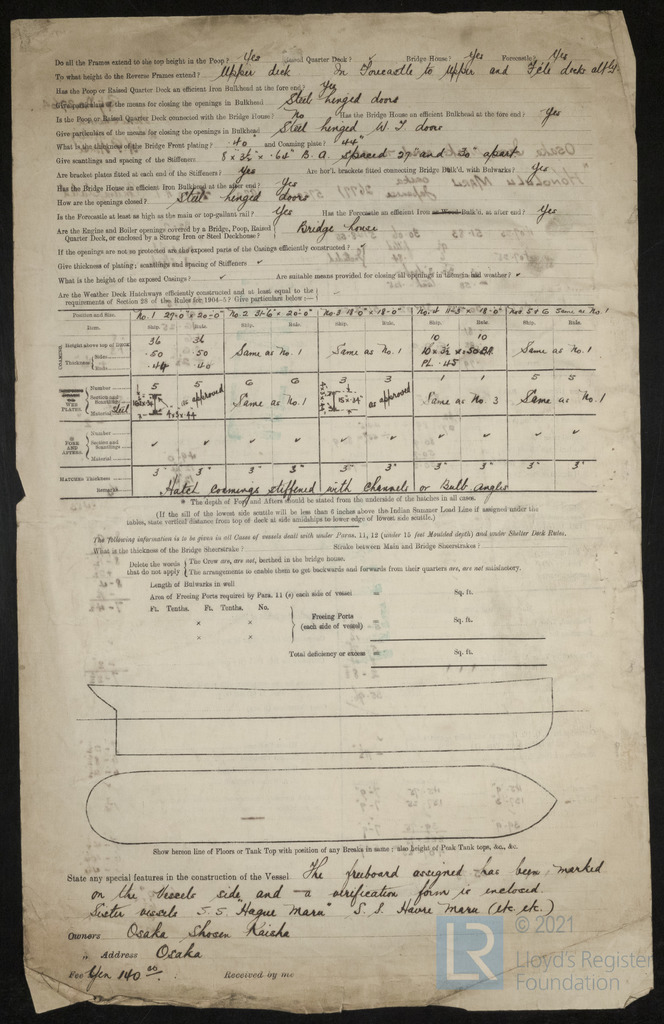 Do all the Frames extend to the top height in the Poop? Yes Raised Quarter Deck? Bridge House? Yes Forecastle? Yes
To what height do the Reverse Frames extend? Upper deck In Forecastle to Upper and F'cle decks altly
Has the Poop or Raised Quarter Deck an efficient Iron Bulkhead at the fore end? Yes
Give particulars of the means for closing the openings in Bulkhead Steel hinged doors
Is the Poop or Raised Quarter Deck connected with the Bridge House? No Has the Bridge House an efficient Bulkhead at the fore end? Yes
Give particulars of the means for closing the openings in Bulkhead Steel hinged W.T. doors
What is the thickness of the Bridge Front plating? .40" and Coaming plate? .44"
Give scantlings and spacing of the Stiffeners 8" x 3½" x .64" B.A. spaced 27" and 30" apart
Are bracket plates fitted at each end of the Stiffeners? Yes Are hor'l. brackets fitted connecting Bridge Bulk'd. with Bulwarks? Yes
Has the Bridge House an efficient Iron Bulkhead at the after end? Yes
How are the openings closed? Steel hinged doors
Is the Forecastle at least as high as the main or top-gallant rail? Yes Has the Forecastle an efficient Iron or Wood Bulk'd. at after end? Yes
Are the Engine and Boiler openings covered by a Bridge, Poop, Raised Quarter Deck, or enclosed by a Strong Iron or Steel Deckhouse? Bridge house
If the openings are not so protected are the exposed parts of the Casings efficiently constructed? ✓
Give thickness of plating; scantlings and spacing of Stiffeners ✓
What is the height of the exposed Casings? ✓ Are suitable means provided for closing all openings in them in bad weather? ✓
Are the Weather Deck Hatchways efficiently constructed and at least equal to the
requirements of Section 26 of the Rules for 1904-5? Give particulars below:—
Position and Size. No. 1 27'-0" x 20'-0" No. 2 31'-6" x 20'-0" No. 3 18'-0" x 18'-0" No. 4 11'-3" x 18'-0" Nos 5 & 6 Same as No. 1
Item. Ship. Rule. Ship. Rule. Ship. Rule. Ship. Rule. Ship. Rule.
COAMING Height above top of DECK 36 36 10 10
Thickness Sides .50 .50 Same as No. 1 Same as No. 1 10 x 3½ x .50 B.A. Same as No. 1
Ends .44 .40 PL .45
Number 5 5 6 6 3 3 1 1 5 5
WEB PLATES. Section and Scantlings as approved Same as No. 1 as approved Same as No. 3 Same as No. 1
Material Steel
Number
FORE AND AFTERS. Section and Scantlings ✓ ✓ ✓ ✓ ✓ ✓ ✓ ✓ ✓ ✓
Material
HATCHES Thickness 3" 3" 3" 3" 3" 3" 3" 3" 3" 3"
Remarks Hatch coamings stiffened with channels or Bulb angles
* The depth of Fore and Afters should be stated from the underside of the hatches in all cases.
(If the sill of the lowest side scuttle will be less than 6 inches above the Indian Summer Load Line if assigned under the
tables, state vertical distance from top of deck at side amidships to lower edge of lowest side scuttle.)
The following information is to be given in all Cases of vessels dealt with under Paras. 11, 12 (under 15 feet Moulded depth) and under Shelter Deck Rules.
What is the thickness of the Bridge Sheerstrake? Strake between Main and Bridge Sheerstrakes?
Delete the words that do not apply
The Crew are, are not, berthed in the bridge house.
The arrangements to enable them to get backwards and forwards from their quarters are, are not satisfactory.
Length of Bulwarks in well
Area of Freeing Ports required by Para. 11 (e) each side of vessel = Sq. ft.
Ft. Tenths. Ft. Tenths. No.
× × Freeing Ports (each side of vessel) = Sq. ft.
× ×
Total deficiency or excess = Sq. ft.
Show hereon line of Floors or Tank Top with position of any Breaks in same; also height of Peak Tank tops, &c., &c.
State any special features in the construction of the Vessel The freeboard assigned has been marked
on the Vessels side and a verification form is enclosed.
Sister vessels S.S. "Hague Maru" S.S. Havre Maru (etc. etc.)
Owners Osaka Shosen Kaisha
" Address Osaka
Fee Yen 140.00 Received by me
LR © 2021
Lloyd's Register
Foundation